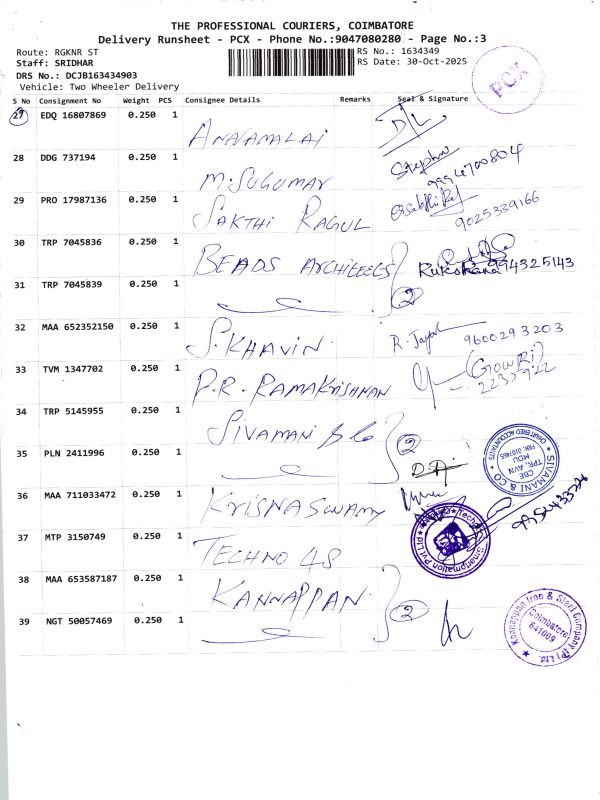 THE PROFESSIONAL COURIERS, COIMBATORE
Delivery Runsheet - PCX - Phone No.:9047080280 - Page No.:3
Route: RGKNR ST
RS No.: 1634349
Staff: SRIDHAR
RS Date: 30-Oct-2025
DRS No.: DCJB163434903
Vehicle: Two Wheeler Delivery
PCX
S No Consignment No Weight PCS Consignee Details Remarks Seal & Signature
27 EDQ 16807869 0.250 1 ANNAMALAI
28 DDG 737194 0.250 1 M.SUGUMAR Stephen 9994700804
29 PRO 17987136 0.250 1 SAKTHI RAGUL 9025339166
30 TRP 7045836 0.250 1 BEADS Rukshana 994325143
31 TRP 7045839 0.250 1 2
32 MAA 652352150 0.250 1 S.KHAVIN R. 9600293203
33 TVM 1347702 0.250 1 P.R. RAMAKRISHNAN (GOWRI)
34 TRP 5145955 0.250 1 SIVAMANI & Co 2
35 PLN 2411996 0.250 1
SIVAMANI & CO
CHARTERED ACCOUNTANTS
CBE
MDU
TPR, AVN
36 MAA 711033472 0.250 1 KRISNASWAMY
37 MTP 3150749 0.250 1 TECHNO 48
38 MAA 653587187 0.250 1 KANNAPPAN 2
39 NGT 50057469 0.250 1
Kannappan Iron & Steel Company (P) Ltd.
Coimbatore
641009